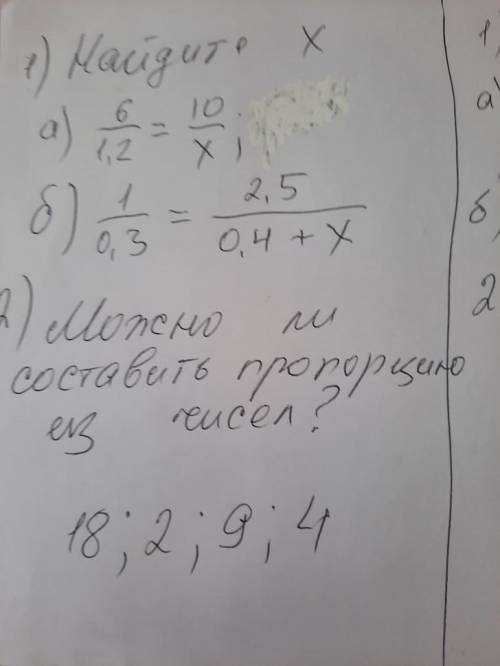 1) Найдите x
а) 6/1,2 = 10/x;
б) 1/0,3 = 2,5/(0,4 + x)
2) Можно ли
составить пропорцию
из чисел?
18; 2; 9; 4
1
а)
б)
2